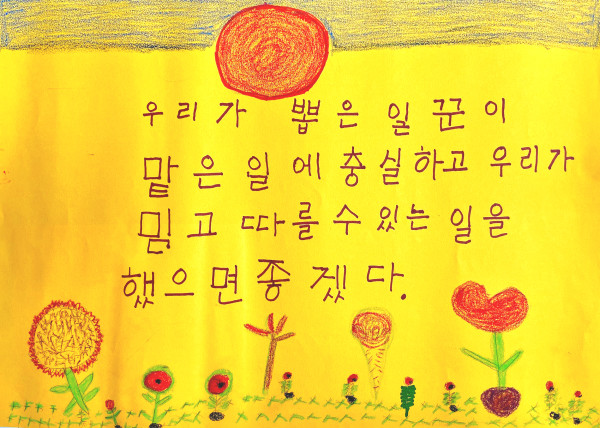 우리가 뽑은 일꾼이
맡은 일에 충실하고 우리가
믿고 따를 수 있는 일을
했으면 좋겠다.